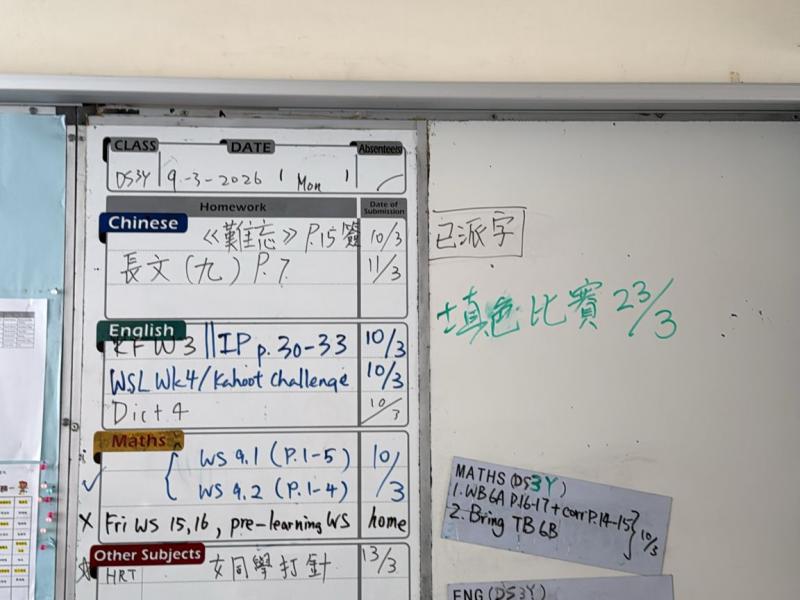 CLASS DATE Absentees
DS3Y 9-3-2026 ( Mon )
Homework Date of Submission
Chinese
《難忘》P.15簽 10/3
長文(九)P.7 11/3
English
RFW3 || IP p.30-33 10/3
WSL Wk4/Kahoot Challenge 10/3
Dict 4 10/3
Maths
WS 9.1 (P.1-5) 10/3
WS 9.2 (P.1-4)
Fri WS 15,16, pre-learning WS home
Other Subjects
HRT 女同學打針 13/3
已派字
填色比賽 23/3
MATHS (DS3Y)
1. WB6A P.16-17 + corr P.14-15
2. Bring TB6B
10/3
ENG (DS3Y)